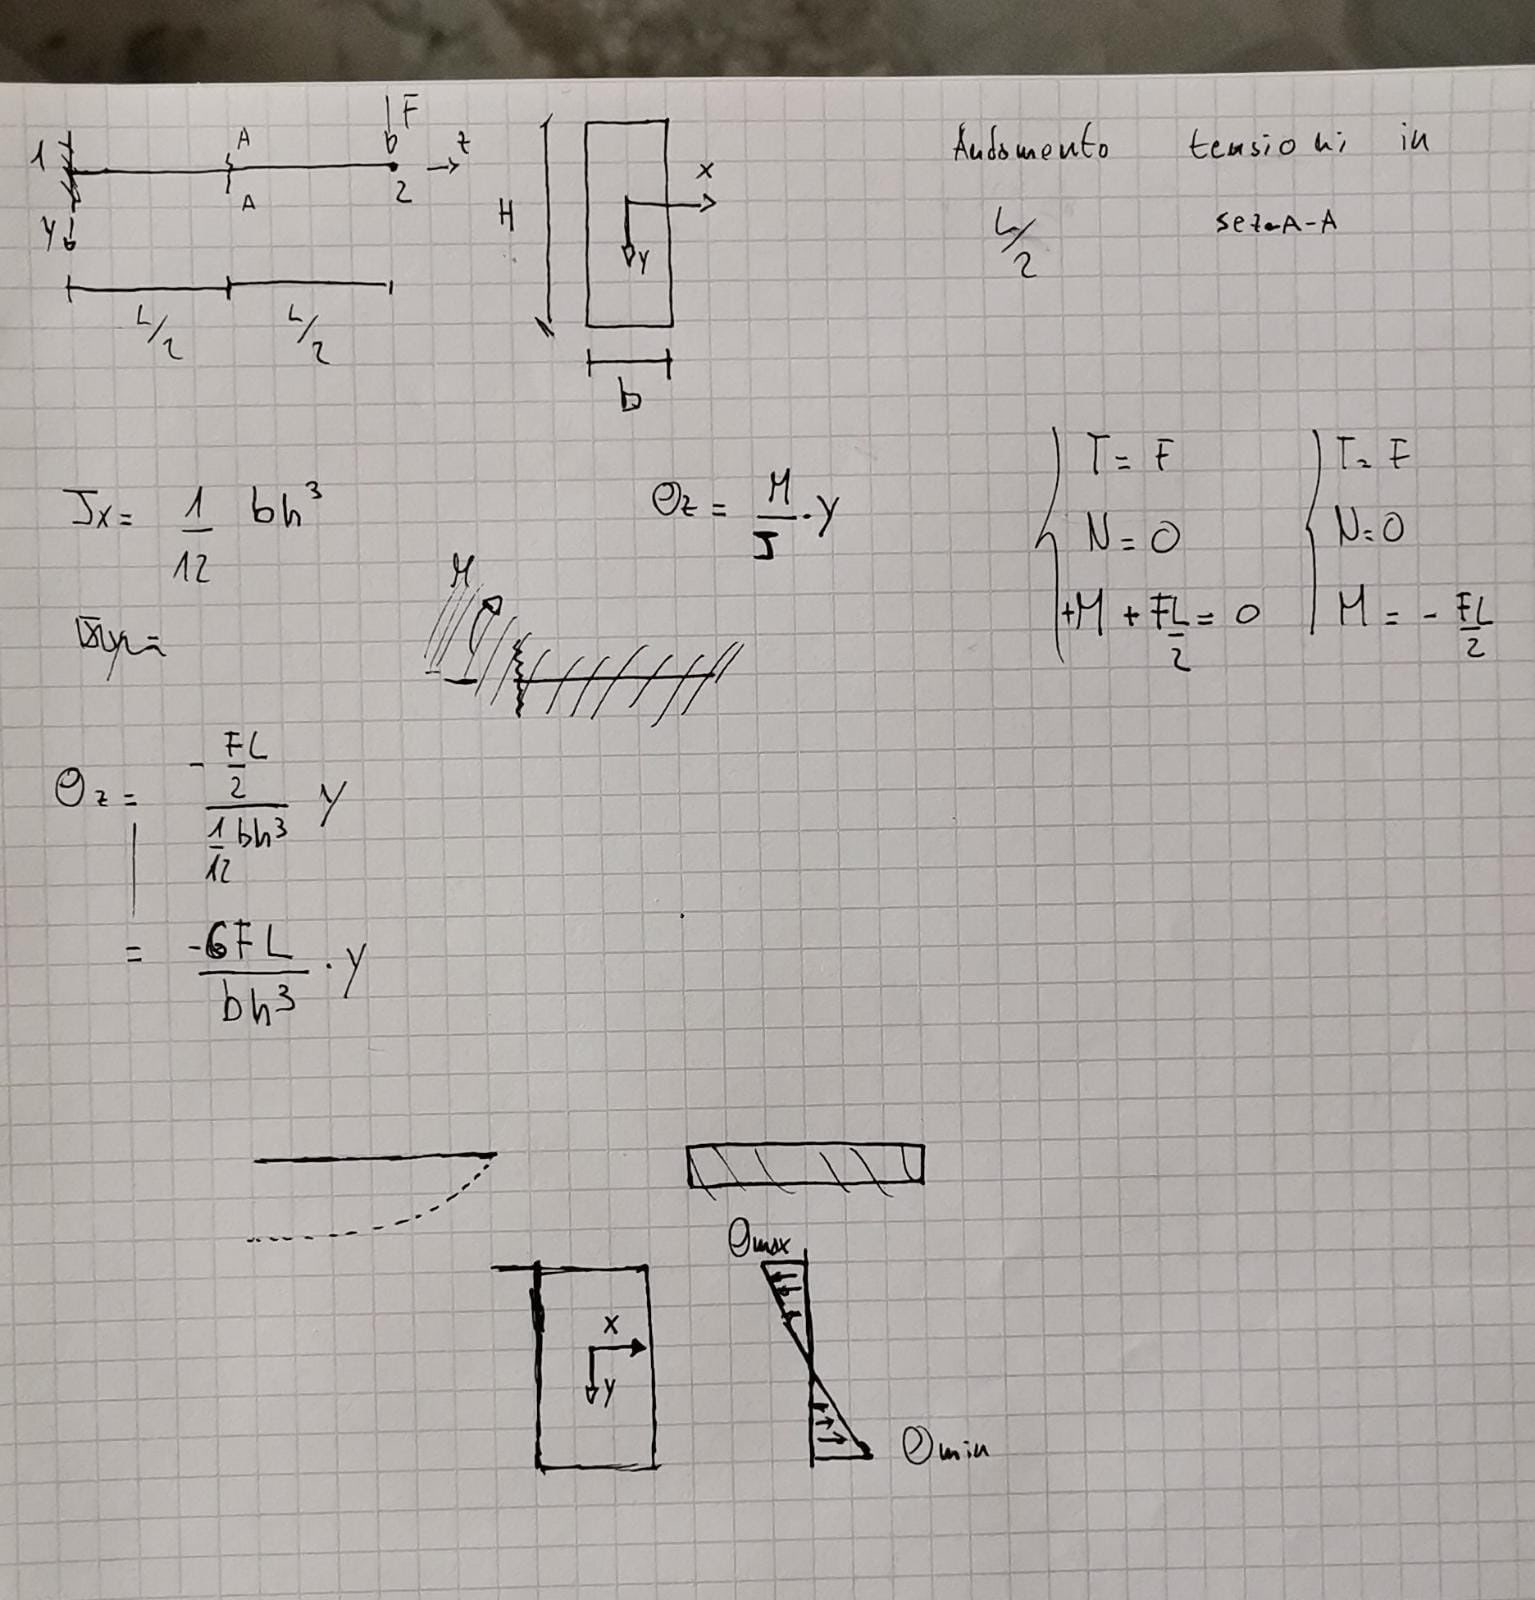 F
A
z
1
A
2
y
L/2 L/2
H
x
y
b
Andamento tensioni in
L/2 sez. A-A
Jx = 1/12 bh³
σz = M/J · y
T = F
N = 0
+M + FL/2 = 0
T = F
N = 0
M = - FL/2
M
σz = (- FL/2) / (1/12 bh³) y
= -6FL/bh³ · y
σmax
x
y
σmin